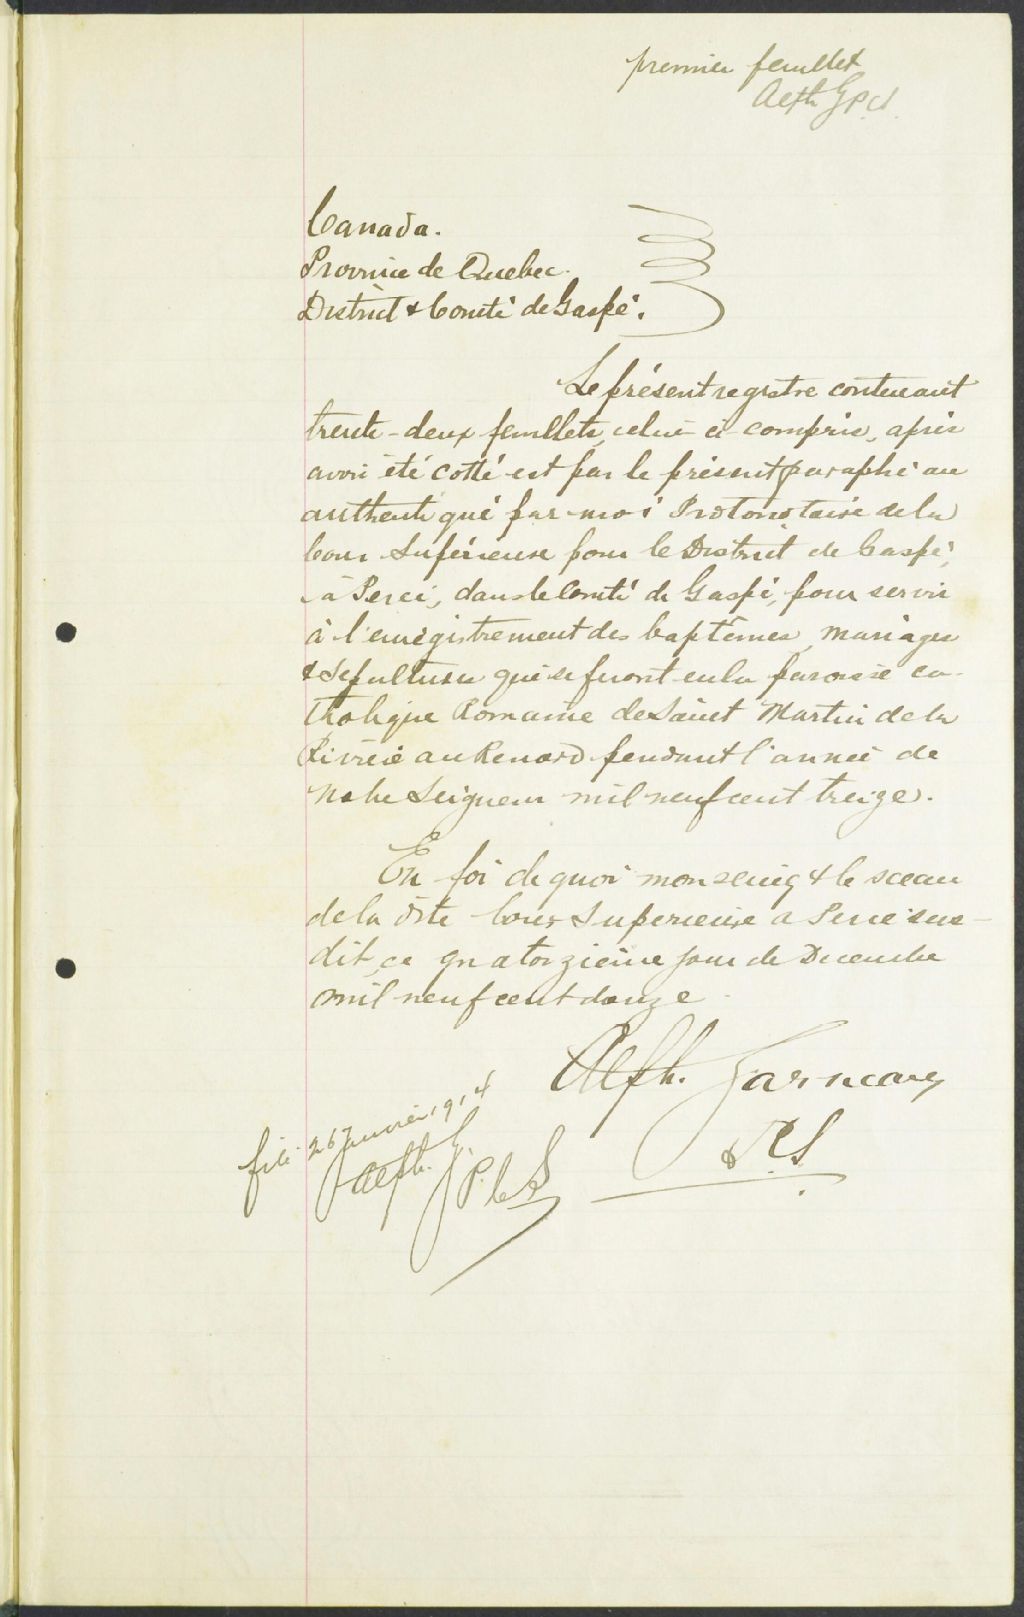 premier feuillet
Alph G P.C.S.
Canada.
Province de Quebec.
District & Comté de Gaspé.
Le présent registre contenant
trente-deux feuillets, celui ci compris, après
avoir été cotté est par le présent paraphé au
authentiqué par moi Protonotaire de la
Cour Supérieure pour le District de Gaspé,
à Percé, dans le Comté de Gaspé, pour servir
à l'enregistrement des baptêmes, mariages
& sepultures qui se feront en la paroisse ca-
tholique Romaine de Saint Martin de la
Rivière au Renard pendant l'année de
Notre Seigneur mil neuf cent treize.
En foi de quoi mon seing & le sceau
de la dite Cour Superieure a Percé sus-
dit, ce quatorzième jour de Decembre
mil neuf cent douze.
Alph. Garneau
P.C.S.
filé 26 Janvier 1914
Alph. G.
P.C.S